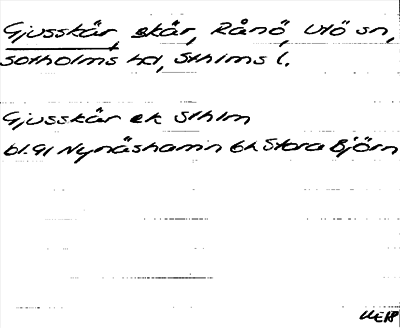 Gjusskär, skär, Rånö, Utö sn,
Sotholms hd, Sthlms l.
Gjusskär ek Sthlm
bl.91 Nynäshamn 6h Stora Björn